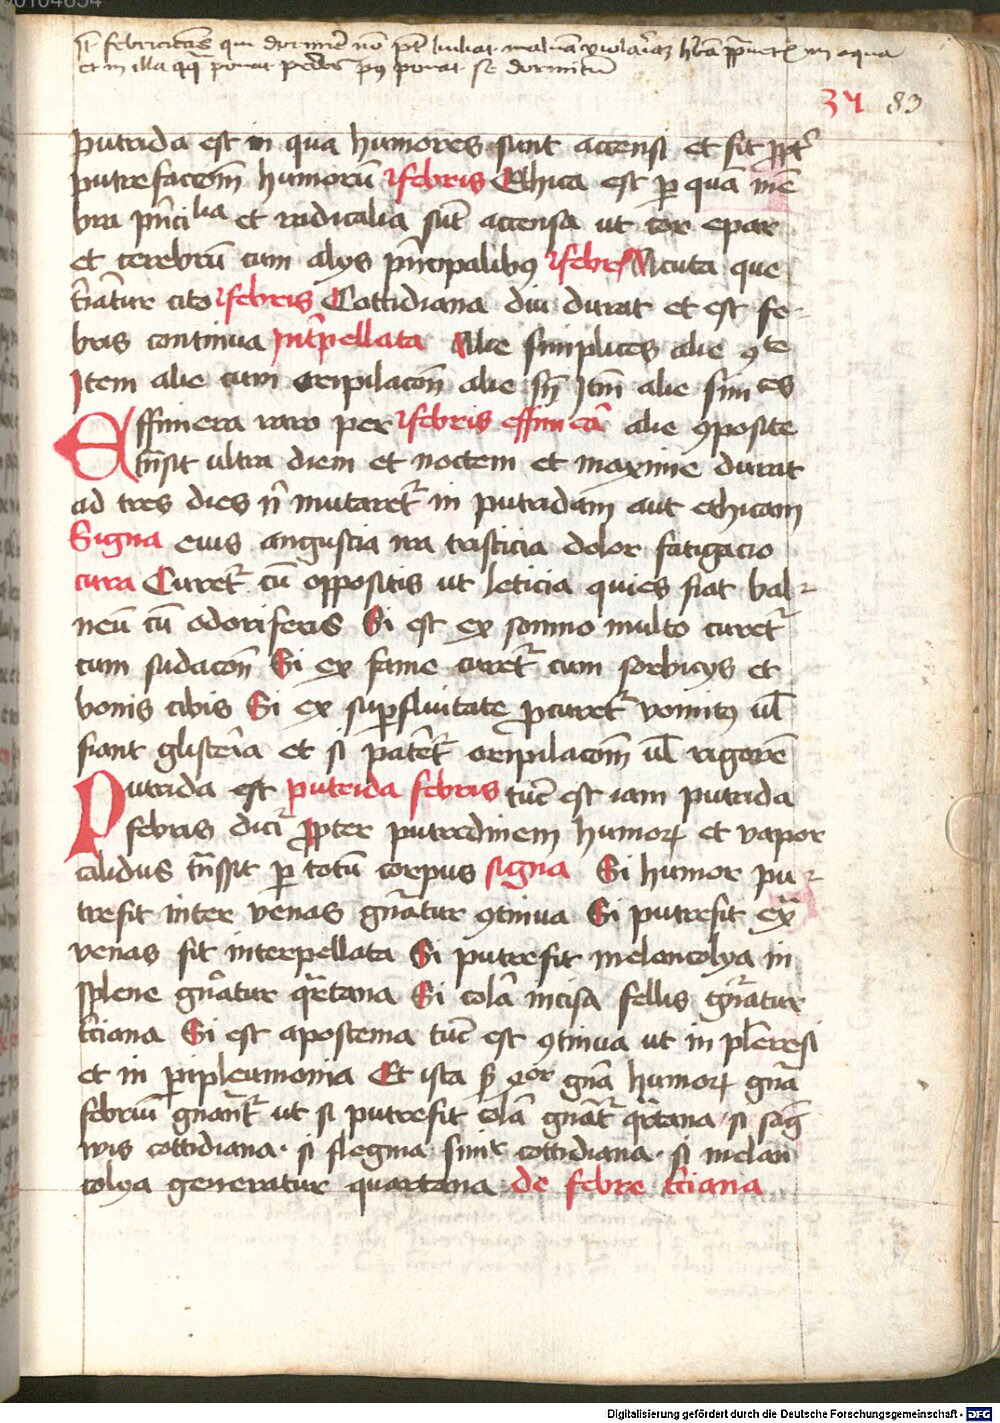 00104654
qui dormire aqua
et in illa ponat pedes ponat se dormitum
34 83
putrida est in qua humores sunt accensi et fit ppt̄
putrefactōem humorū febris Ethica est p quam mē
bra pn̄cilia et radicalia sūt accensa ut cor epar
et cerebrū cum alijs pn̄cipalibus febris Acuta que
t̄iatur cito febris Cottidiana diu durat et est fe-
bris continua Int̄pellata Alie simplices alie 9te
Item alie cum oripilacōn alie sn̄ Itm̄ alie simt es
Effimera raro per febris effim̄ a alie 9posite
tn̄sit ultra diem et noctem et maxime durat
ad tres dies n̄ mutaret̄ in putridam aut ethicam
Signa eius angustia ira tristicia dolor fatigacio
cura Curet̄ cū oppositis ut leticia quies fiat bal-
neū cū odoriferis Si est ex somno multo curet̄
cum sudacōn Si ex fame curet̄ cum sorbicijs et
bonis cibis Si ex supfluitate pcuret̄ vomitus ul̄
fiant glistēia et si patet̄ oripilacōm ul̄ rigorē
Putrida est putrida febris tūc est iam putrida
febris dicit̄ ppter putredinem humoꝝ et vapor
calidus tn̄sit p totū corpus signa Si humor pu-
trefit inter venas gn̄atur 9tinua Si putrefit ex̄
venas fit interpellata Si putrefit melancolya in
splene gn̄atur qr̄tana Si colā incisa fellis gn̄atur
t̄ciana Si est apostema tūc est 9tinua ut in pleresi
et in piplewmonia Et ista gn̄a humoꝝ gn̄a
febriū gn̄ant̄ ut si putrefit colā gn̄at̄ qr̄tana si sāg
wis cottidiana. si flegma simt cottidiana. si melan
colya generatur quartana de febre t̄ciana
Digitalisierung gefördert durch die Deutsche Forschungsgemeinschaft - DFG